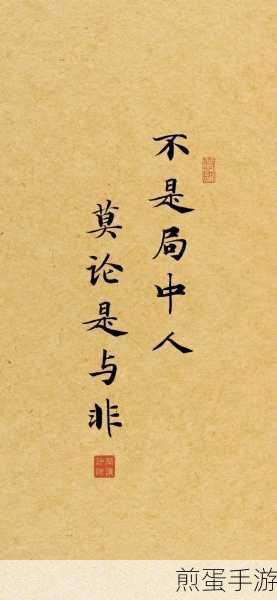 不是局中人
莫论是与非
煎蛋手游